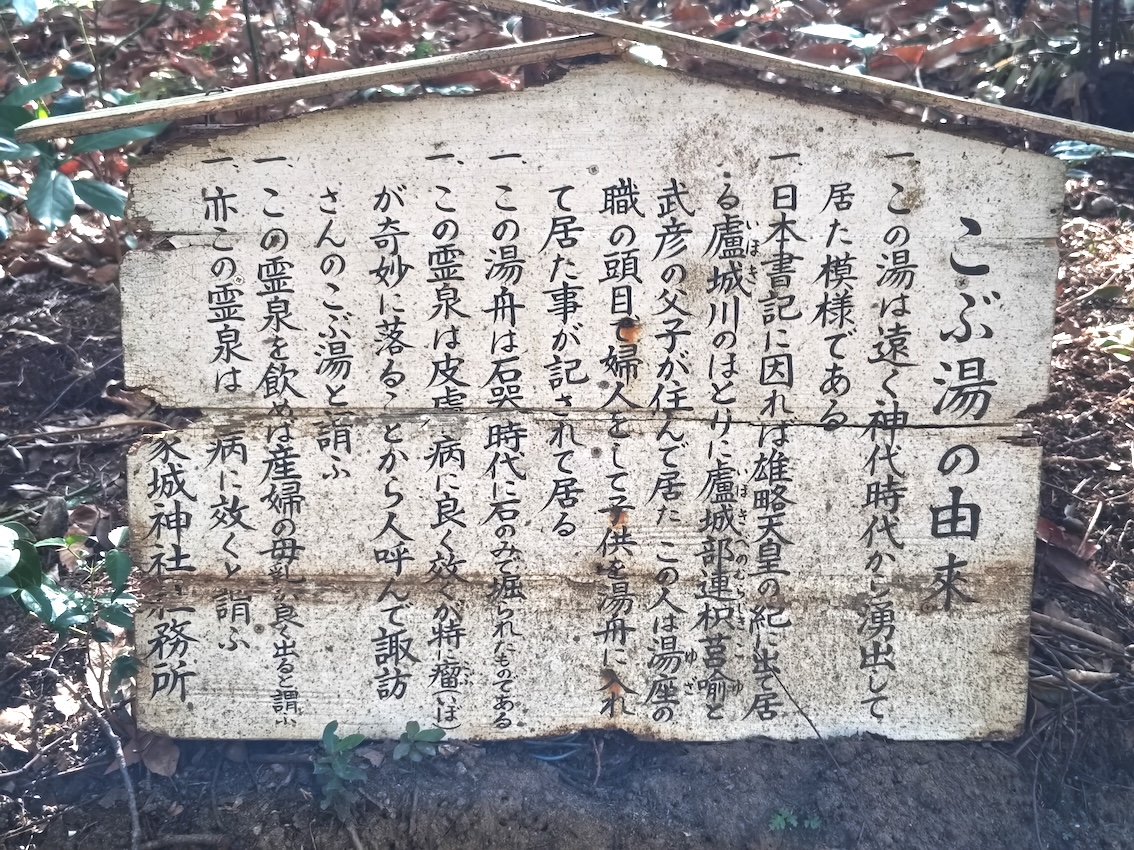 こぶ湯の由来
一、この湯は遠く神代時代から湧出して
居た模様である
一、日本書記に因れば雄略天皇の紀に出て居
る盧城川のほとりに盧城部連枳莒喩と
いほき
いほきべのむらじきこゆ
武彦の父子が住んで居た この人は湯座の
ゆざ
職の頭目で婦人をして子供を湯舟に入れ
て居た事が記されて居る
一、この湯舟は石器時代に石のみで堀られたものである
一、この霊泉は皮膚病に良く効くが特に瘤(いぼ)
こぶ
が奇妙に落ることから人呼んで諏訪
さんのこぶ湯と謂ふ
一、この霊泉を飲めば産婦の母乳が良く出ると謂ふ
一、亦この霊泉は 病に効くと謂ふ
家城神社社務所